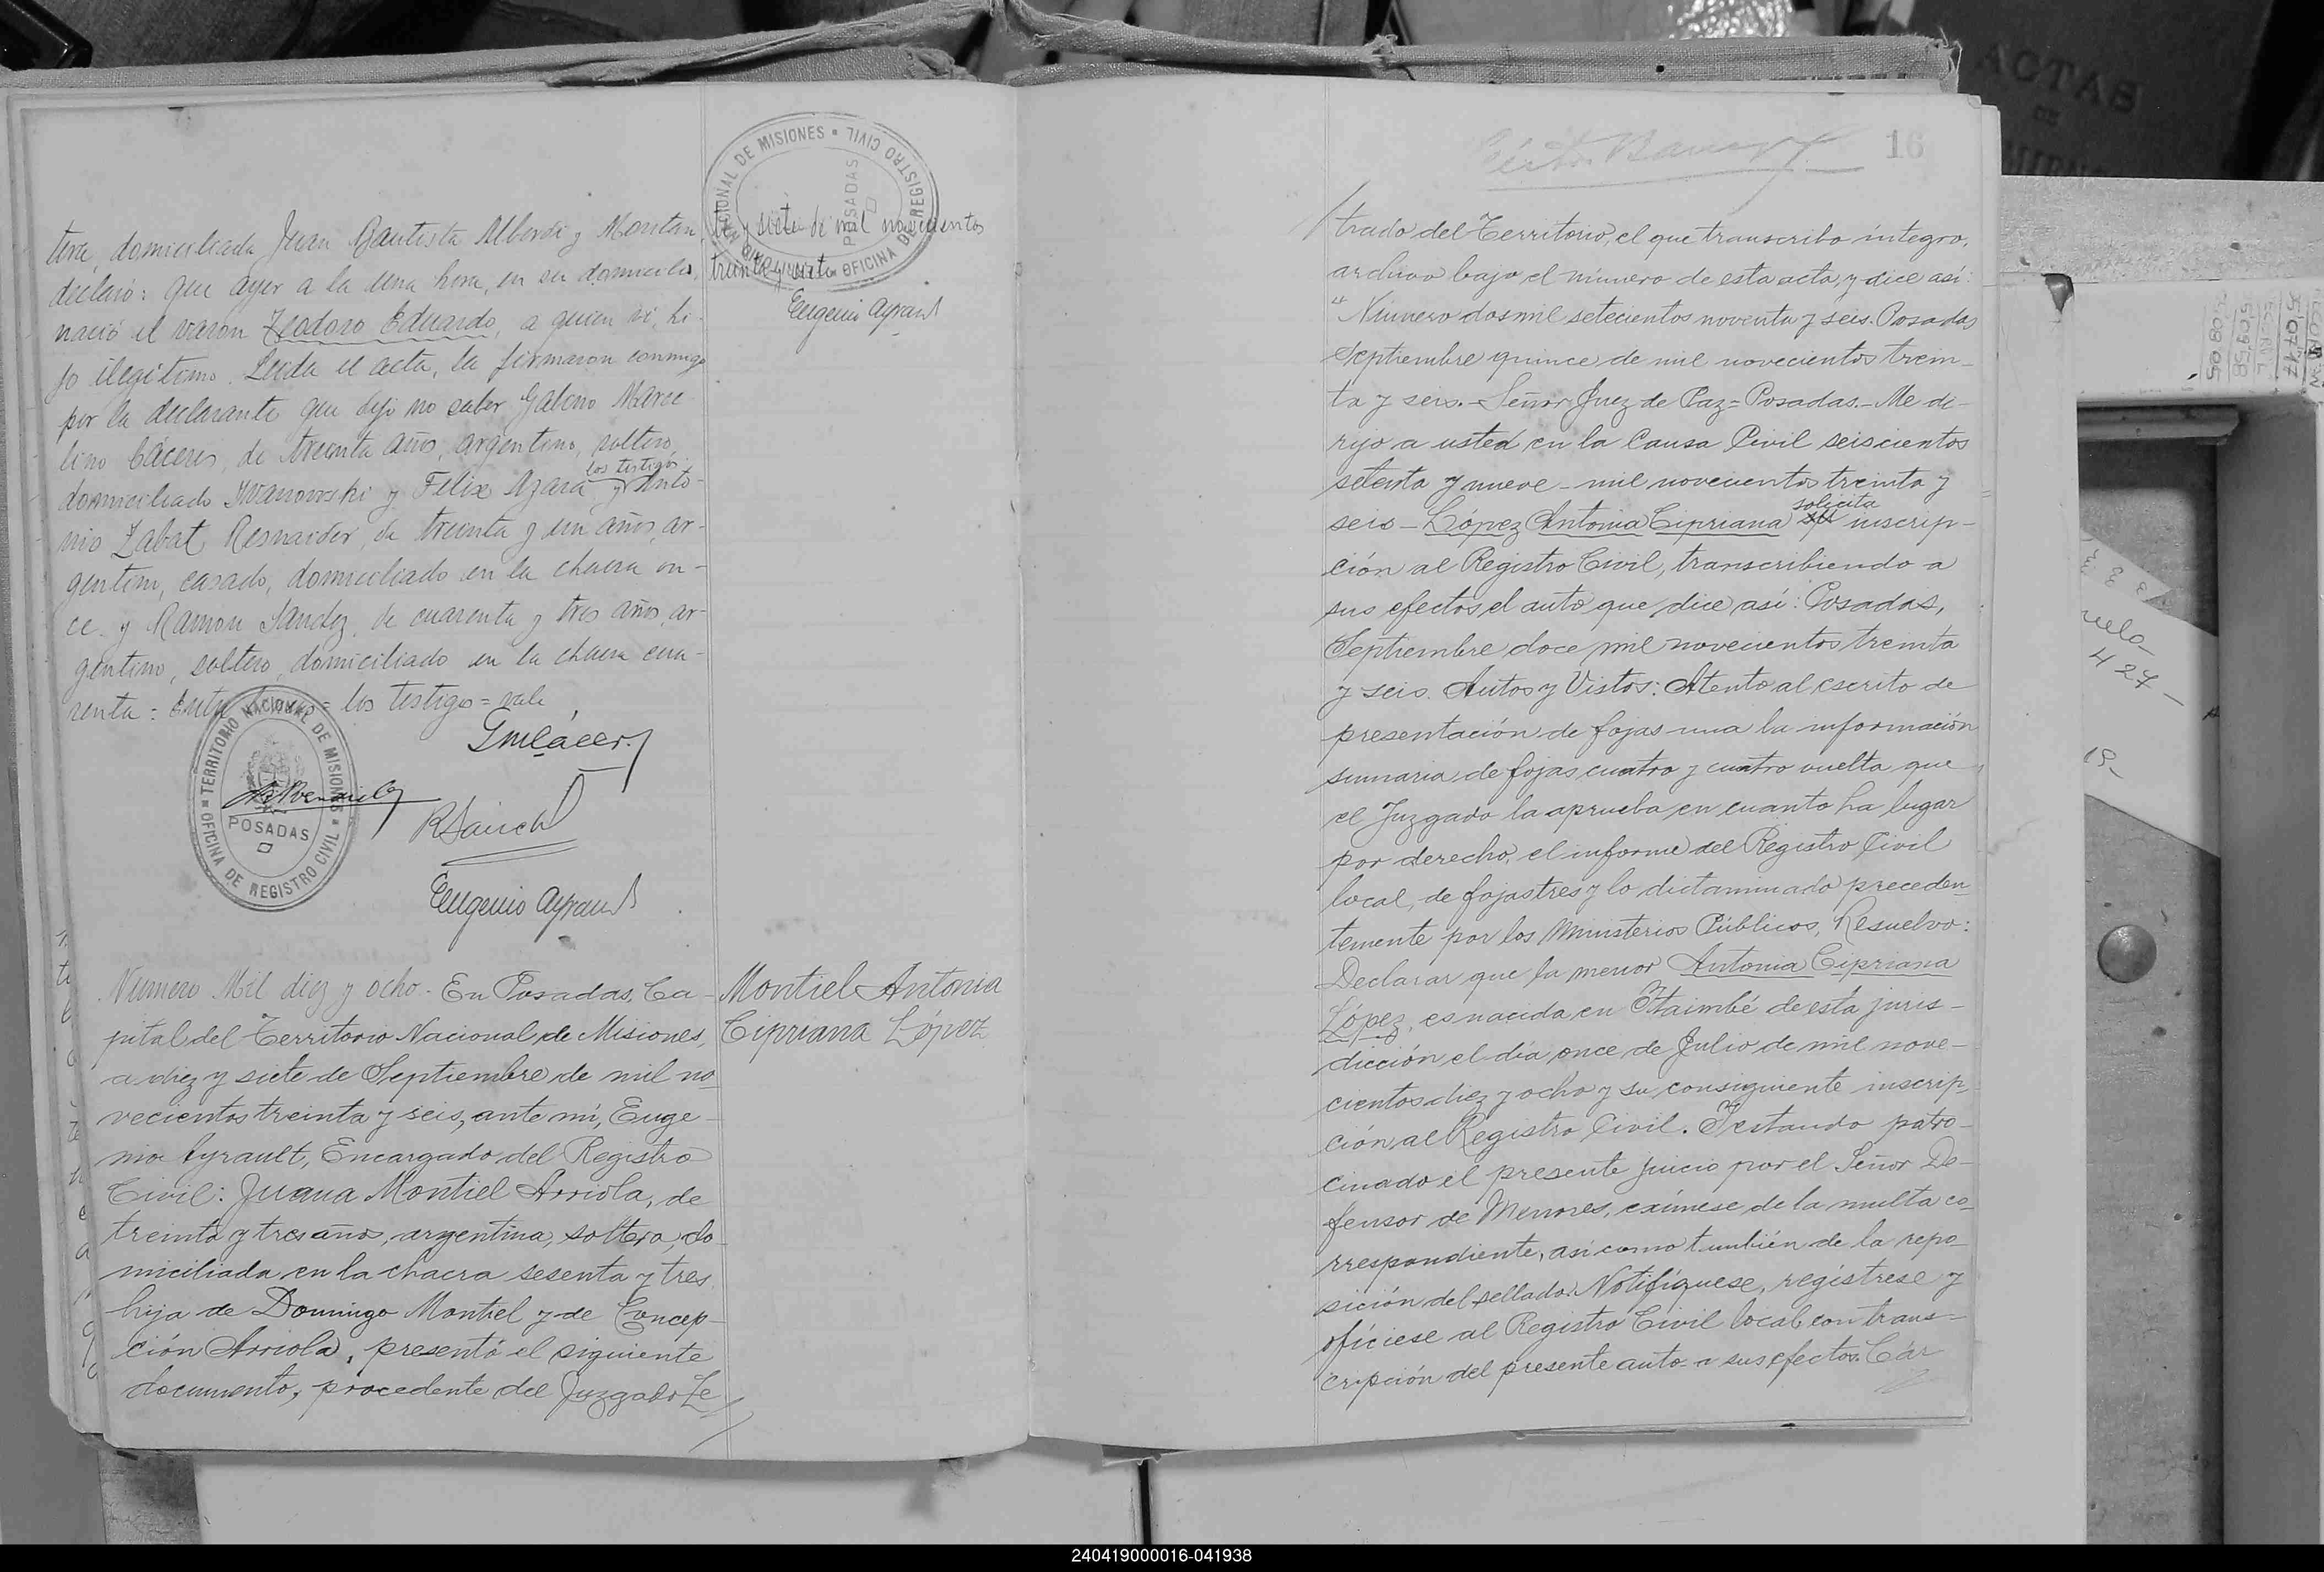 tera, domiciliada Juan Bautista Alberdi y Montan,
declaró: que ayer a la una hora, en su domicilio,
nació el varon Teodoro Eduardo, a quien vi, hi-
jo ilegitimo. Leida el acta, la firmaron conmigo
por la declarante que dijo no saber Gabino Marce-
lino Cáceres, de treinta años, argentino, soltero,
los testigos
domiciliado Ywanowski y Felix Azara y Anto-
nio Zabat Resnaider, de treinta y un años, ar-
gentino, casado, domiciliado en la chacra on-
ce y Ramon Sandez, de cuarenta y tres años, ar-
gentino, soltero, domiciliado en la chacra cua-
renta = Entre lineas = los testigo = vale
TERRITORIO NACIONAL DE MISIONES
OFICINA DE REGISTRO CIVIL
POSADAS
Gmcácer
Eugenio Ayrault
Número Mil diez y ocho. En Posadas, Ca-
pital del Territorio Nacional de Misiones,
a diez y siete de Septiembre de mil no
vecientos treinta y seis, ante mí, Euge-
nio Ayrault, Encargado del Registro
Civil: Juana Montiel Arriola, de
treinta y tres años, argentina, soltera, do
miciliada en la chacra sesenta y tres
hija de Domingo Montiel y de Concep-
ción Arriola, presentó el siguiente
documento, procedente del Juzgado Le
TERRITORIO NACIONAL DE MISIONES
OFICINA DE REGISTRO CIVIL
POSADAS
ta y siete de mil novecientos
treinta y siete
Eugenio Ayrault
Montiel Antonia
Cipriana López
16
trado del Territorio, el que transcribo íntegro,
archivo bajo el número de esta acta, y dice así:
"Número dos mil setecientos noventa y seis. Posadas
Septiembre quince de mil novecientos trein-
ta y seis.- Señor Juez de Paz= Posadas.- Me di-
rijo a usted en la Causa Civil seiscientos
setenta y nueve - mil novecientos treinta y
solicita
seis - López Antonia Cipriana su inscrip-
ción al Registro Civil, transcribiendo a
sus efectos el auto que dice así: Posadas,
Septiembre doce mil novecientos treinta
y seis. Autos y Vistos: Atento al escrito de
presentación de fojas una la información
sumaria de fojas cuatro y cuatro vuelta que
el Juzgado la aprueba en cuanto ha lugar
por derecho, el informe del Registro Civil
local, de fojas tres y lo dictaminado preceden
temente por los Ministerios Públicos, Resuelvo:
Declarar que la menor Antonia Cipriana
López, es nacida en Itaimbé de esta juris-
dicción el día once de Julio de mil nove-
cientos diez y ocho y su consiguiente inscrip-
ción al Registro Civil. Y estando patro-
cinado el presente juicio por el Señor De-
fensor de Menores, exímese de la multa co-
rrespondiente, así como también de la repo
sición del sellado. Notifíquese, regístrese y
ofíciese al Registro Civil local con trans-
cripción del presente auto a sus efectos. Cár
ACTAS
DE
427
240419000016-041938